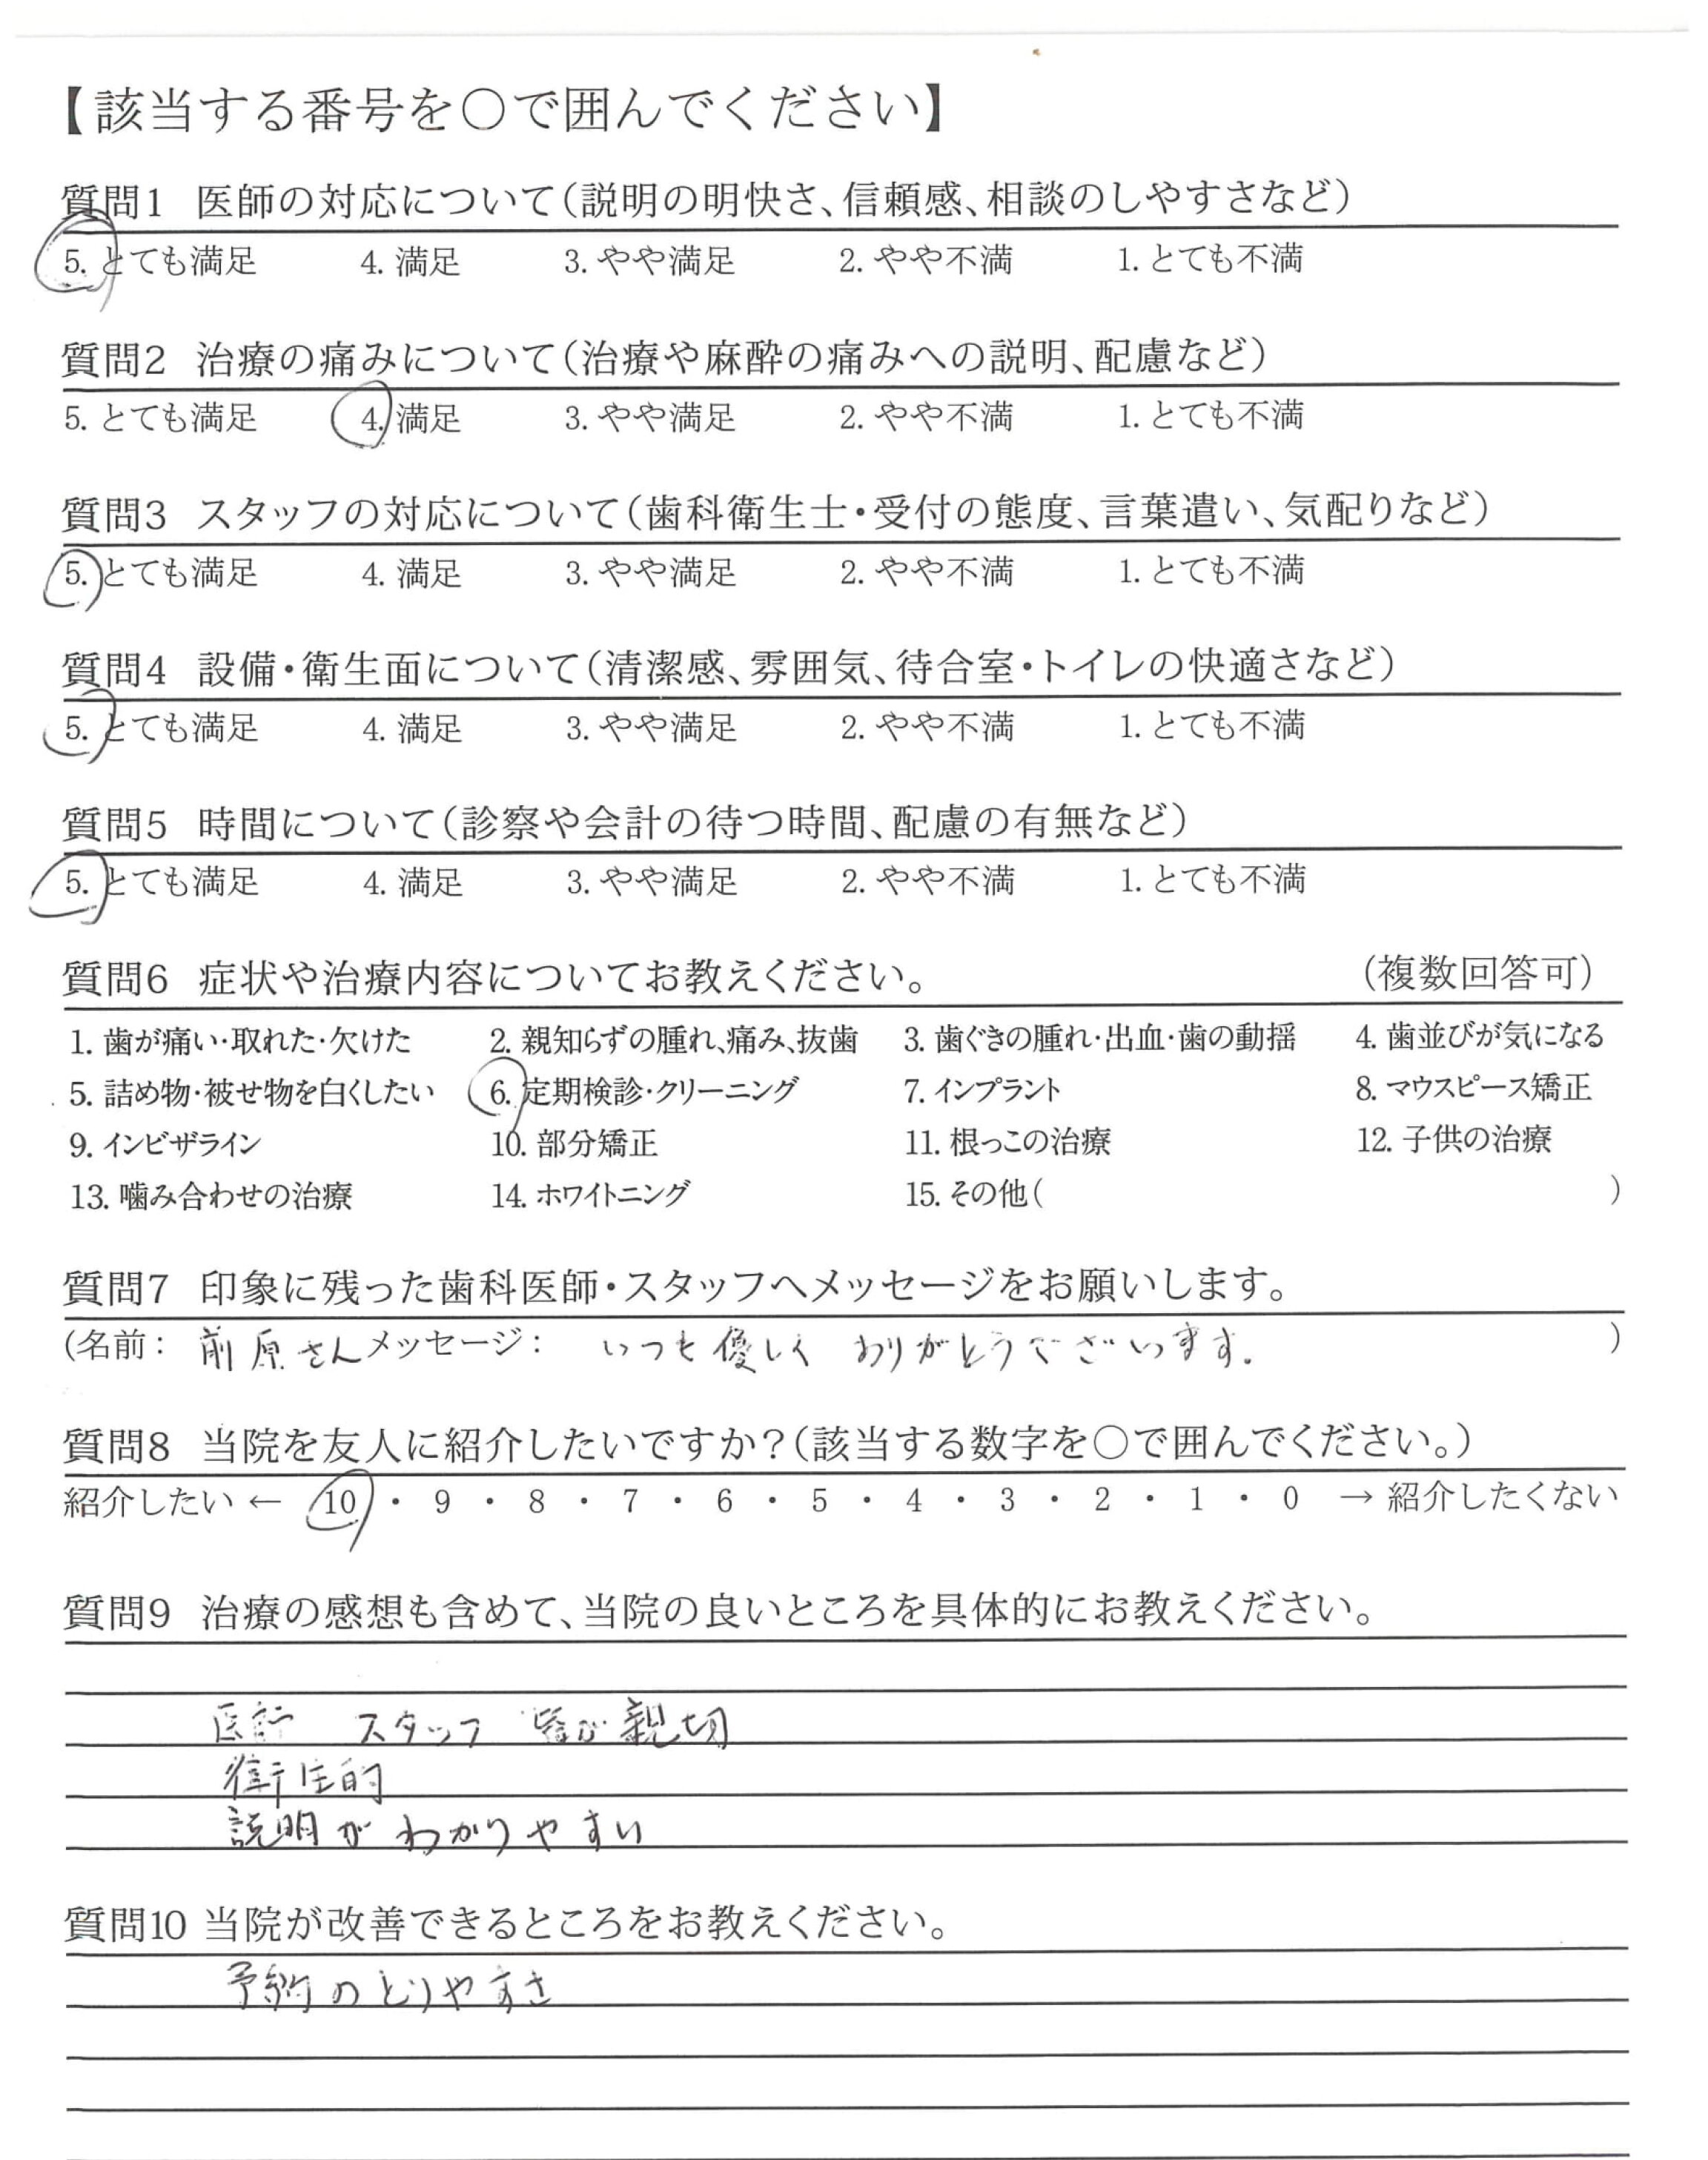 【該当する番号を〇で囲んでください】
質問1 医師の対応について(説明の明快さ、信頼感、相談のしやすさなど)
5. とても満足 4. 満足 3. やや満足 2. やや不満 1. とても不満
質問2 治療の痛みについて(治療や麻酔の痛みへの説明、配慮など)
5. とても満足 4. 満足 3. やや満足 2. やや不満 1. とても不満
質問3 スタッフの対応について(歯科衛生士・受付の態度、言葉遣い、気配りなど)
5. とても満足 4. 満足 3. やや満足 2. やや不満 1. とても不満
質問4 設備・衛生面について(清潔感、雰囲気、待合室・トイレの快適さなど)
5. とても満足 4. 満足 3. やや満足 2. やや不満 1. とても不満
質問5 時間について(診察や会計の待つ時間、配慮の有無など)
5. とても満足 4. 満足 3. やや満足 2. やや不満 1. とても不満
質問6 症状や治療内容についてお教えください。 (複数回答可)
1. 歯が痛い・取れた・欠けた 2. 親知らずの腫れ、痛み、抜歯 3. 歯ぐきの腫れ・出血・歯の動揺 4. 歯並びが気になる
5. 詰め物・被せ物を白くしたい 6. 定期検診・クリーニング 7. インプラント 8. マウスピース矯正
9. インビザライン 10. 部分矯正 11. 根っこの治療 12. 子供の治療
13. 噛み合わせの治療 14. ホワイトニング 15. その他( )
質問7 印象に残った歯科医師・スタッフへメッセージをお願いします。
(名前: 前原さん メッセージ: いつも優しく ありがとうございます。 )
質問8 当院を友人に紹介したいですか?(該当する数字を〇で囲んでください。)
紹介したい ← 10 ・ 9 ・ 8 ・ 7 ・ 6 ・ 5 ・ 4 ・ 3 ・ 2 ・ 1 ・ 0 → 紹介したくない
質問9 治療の感想も含めて、当院の良いところを具体的にお教えください。
医師 スタッフ 皆が親切
衛生的
説明がわかりやすい
質問10 当院が改善できるところをお教えください。
予約のとりやすさ